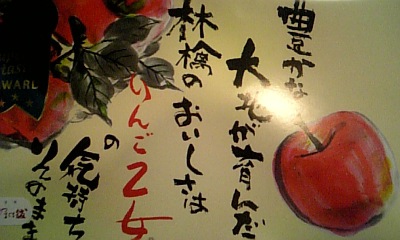 豊かな
大地が育んだ
林檎のおいしさは
りんご乙女。
の
気持ち
そのまま